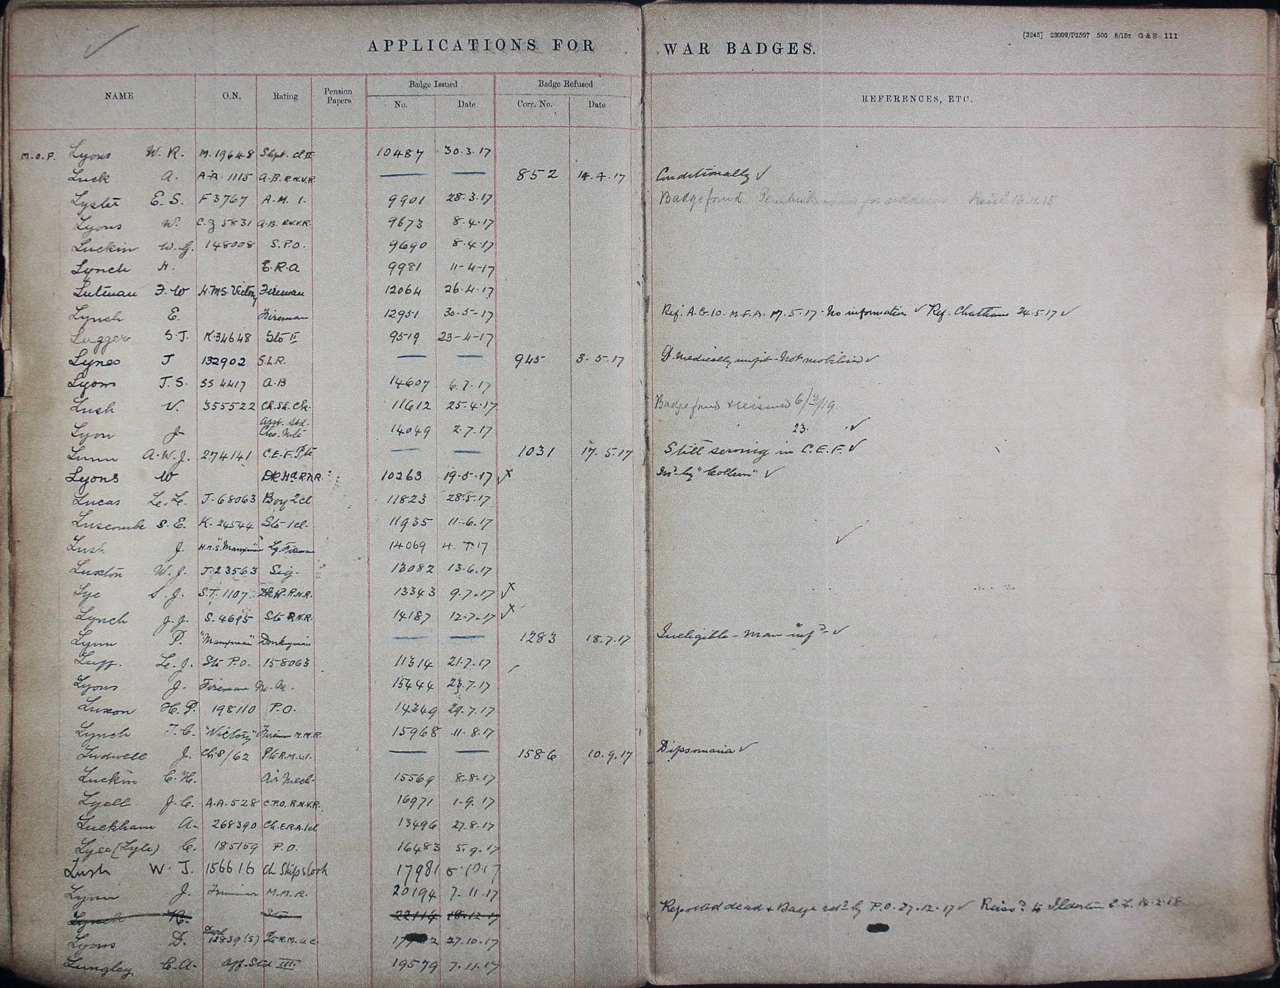 APPLICATIONS FOR WAR BADGES.
[3245] 23009/P2597 500 8/15T G & S 111
NAME O.N. Rating Pension Papers Badge Issued No. Date Badge Refused Corr. No. Date REFERENCES, ETC.
M.O.P. Lyons W. R. M.19648 10487 30.3.17
Luck A. A.A. 1115 A.B. R.N.V.R 852 14.4.17 Conditionally ✓
Lyster E. S. F 3767 A.M. 1. 9901 28.3.17 Badge found for address 16.11.18
Lyons W. C.Z 5831 A.B. R.N.V.R. 9673 8.4.17
Luckin W.G. 148008 S.P.O. 9690 8.4.17
Lynch H. E.R.A 9981 11-4-17
Lutman F. W H.M.S. Victory Fireman 12064 26.4.17
Lynch E. Fireman 12951 30-5-17 Ref: A.G.10. M.F.A. 17.5.17 - No information ✓ Ref. Chatham 24.5.17 ✓
Lugger S.J. K.34648 Sto II 9519 23-4-17
Lynes J 132902 S.L.R. 945 3.5.17 D. medically unfit - Not mobilised ✓
Lyons J.S. SS 4417 A.B 14607 6.7.17
Lush V. 355522 Ch. Sh. Ck. 11612 25.4.17 Badge found & reissued 6/3/19
Lyon J. 14049 2.7.17 23. ✓
Lunn A.W.J. 274141 C.E.F. Pte 1031 17.5.17 Still serving in C.E.F. ✓
Lyons W 10263 19.5.17 ✓
Lucas L.L. J.68063 Boy 2cl 11823 28.5.17
Luscombe S.E. K.24544 Sto 1cl. 11935 11-6.17
Lush J. Lg. Fireman 14069 4.7.17 ✓
Luxton W.J. J.23563 Sig. 13082 13.6.17
Lye S.J. S.T. 1107 R.N.R. 13343 9.7.17
Lynch J.J. S.4695 Sto R.N.R. 14187 12.7.17
Lynn P. Donkeyman 1283 18.7.17 Ineligible - man infd ✓
Luff. L.J. Sto P.O. 158063 11314 21.7.17
Lyons J. Fireman 15444 23.7.17
Luxon H.P. 198110 P.O. 14349 29.7.17
Lynch T.C. "Victory" Fireman M.M.R. 15968 11.8.17
Ludwell J. Ch 8/62 Pte R.M.L.I. 1586 10.9.17 Dipsomania ✓
Luckin C.H. Air Mech. 15569 8.8.17
Lyall J.C. A.A. 528 C.P.O. R.N.V.R. 16971 1.9.17
Luckham A. 268390 Ch. E.R.A. 1cl 13496 27.8.17
Lyee (Lyle) C. 185159 P.O. 16483 5.9.17
Lush W. J. 156616 Ch Ships Cook 17981 5.10.17
Lynn J. Fireman M.M.R. 20194 7.11.17
Lynch R. Sto 22114 18.12.17 Reported dead & Badge retd by P.O. 27.12.17 ✓
Lyons D. 12839 (S) 27.10.17
Lungley C.A. Off. Std III. 19579 7.11.17